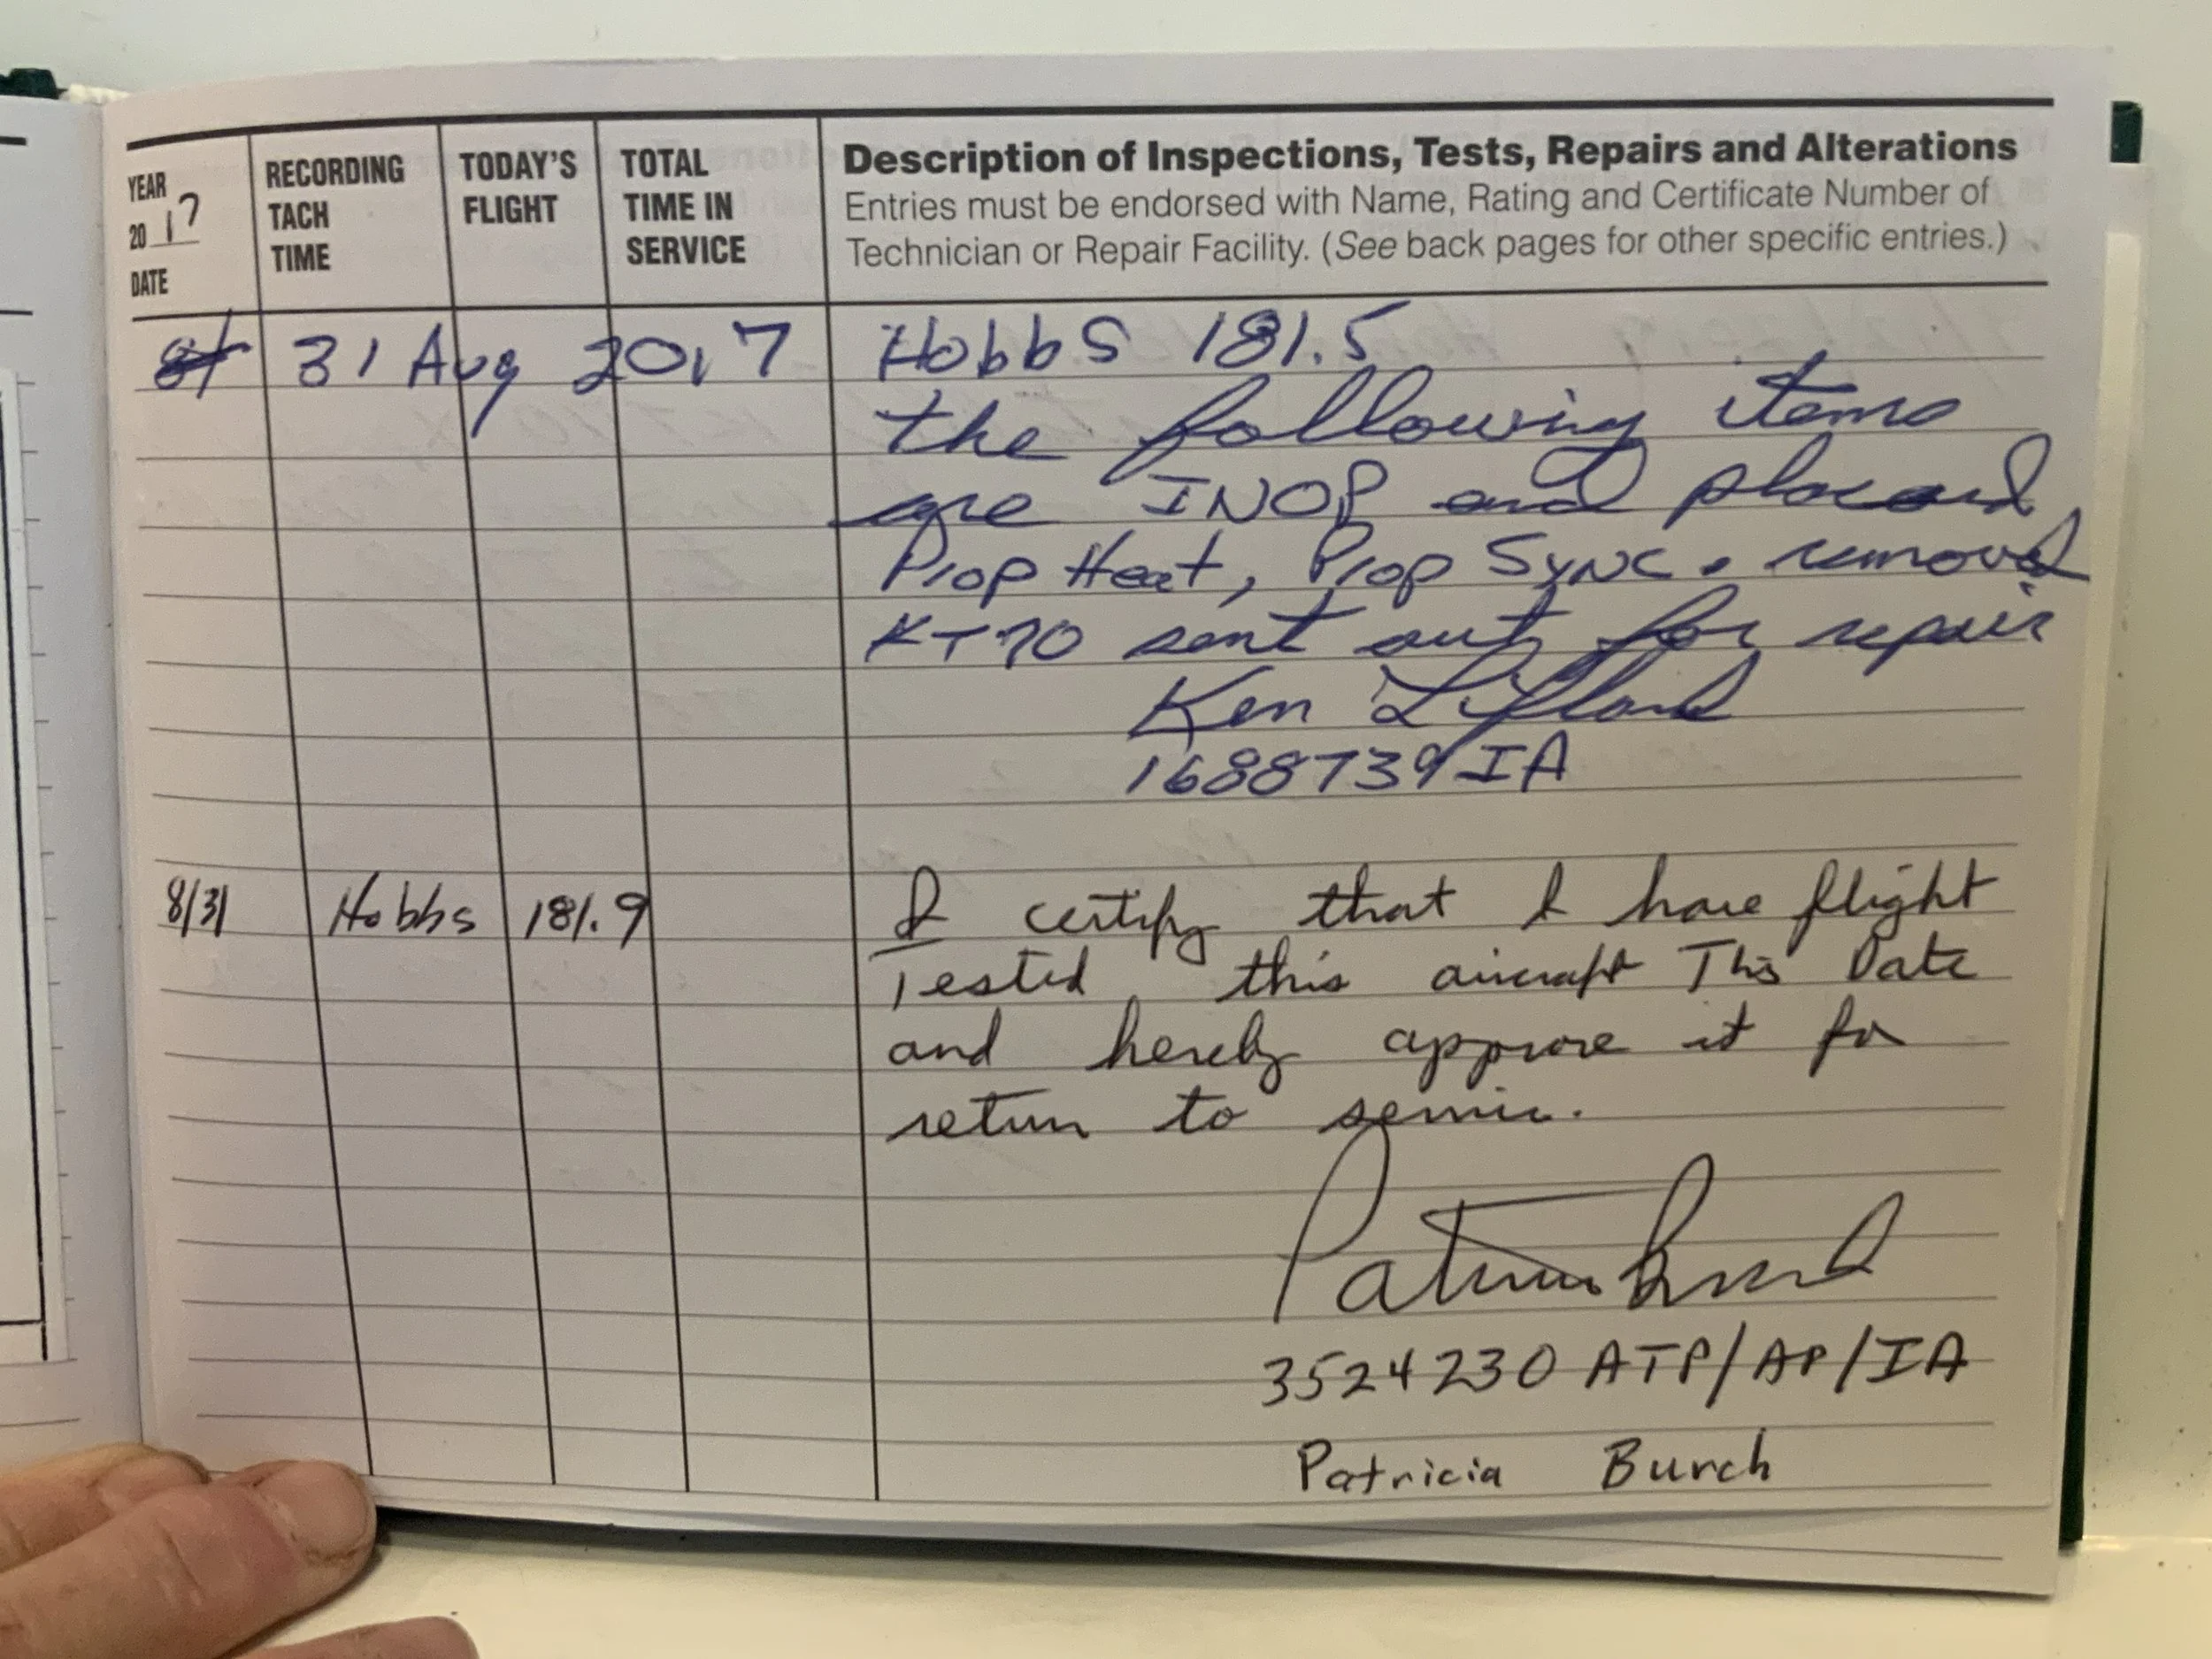 YEAR 2017 DATE
RECORDING TACH TIME
TODAY'S FLIGHT
TOTAL TIME IN SERVICE
Description of Inspections, Tests, Repairs and Alterations
Entries must be endorsed with Name, Rating and Certificate Number of
Technician or Repair Facility. (See back pages for other specific entries.)
31 Aug 2017 Hobbs 181.5
the following items
are INOP and placard
Prop Heat, Prop Sync. removed
KT70 sent out for repair
Ken
1688739 IA
8/31 Hobbs 181.9 I certify that I have flight
Tested this aircraft This Date
and hereby approve it for
return to service.
Patricia Burch
3524230 ATP/AP/IA
Patricia Burch